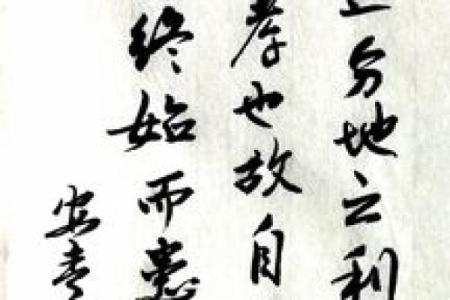 分地之利
孝也故自
終始而患
安